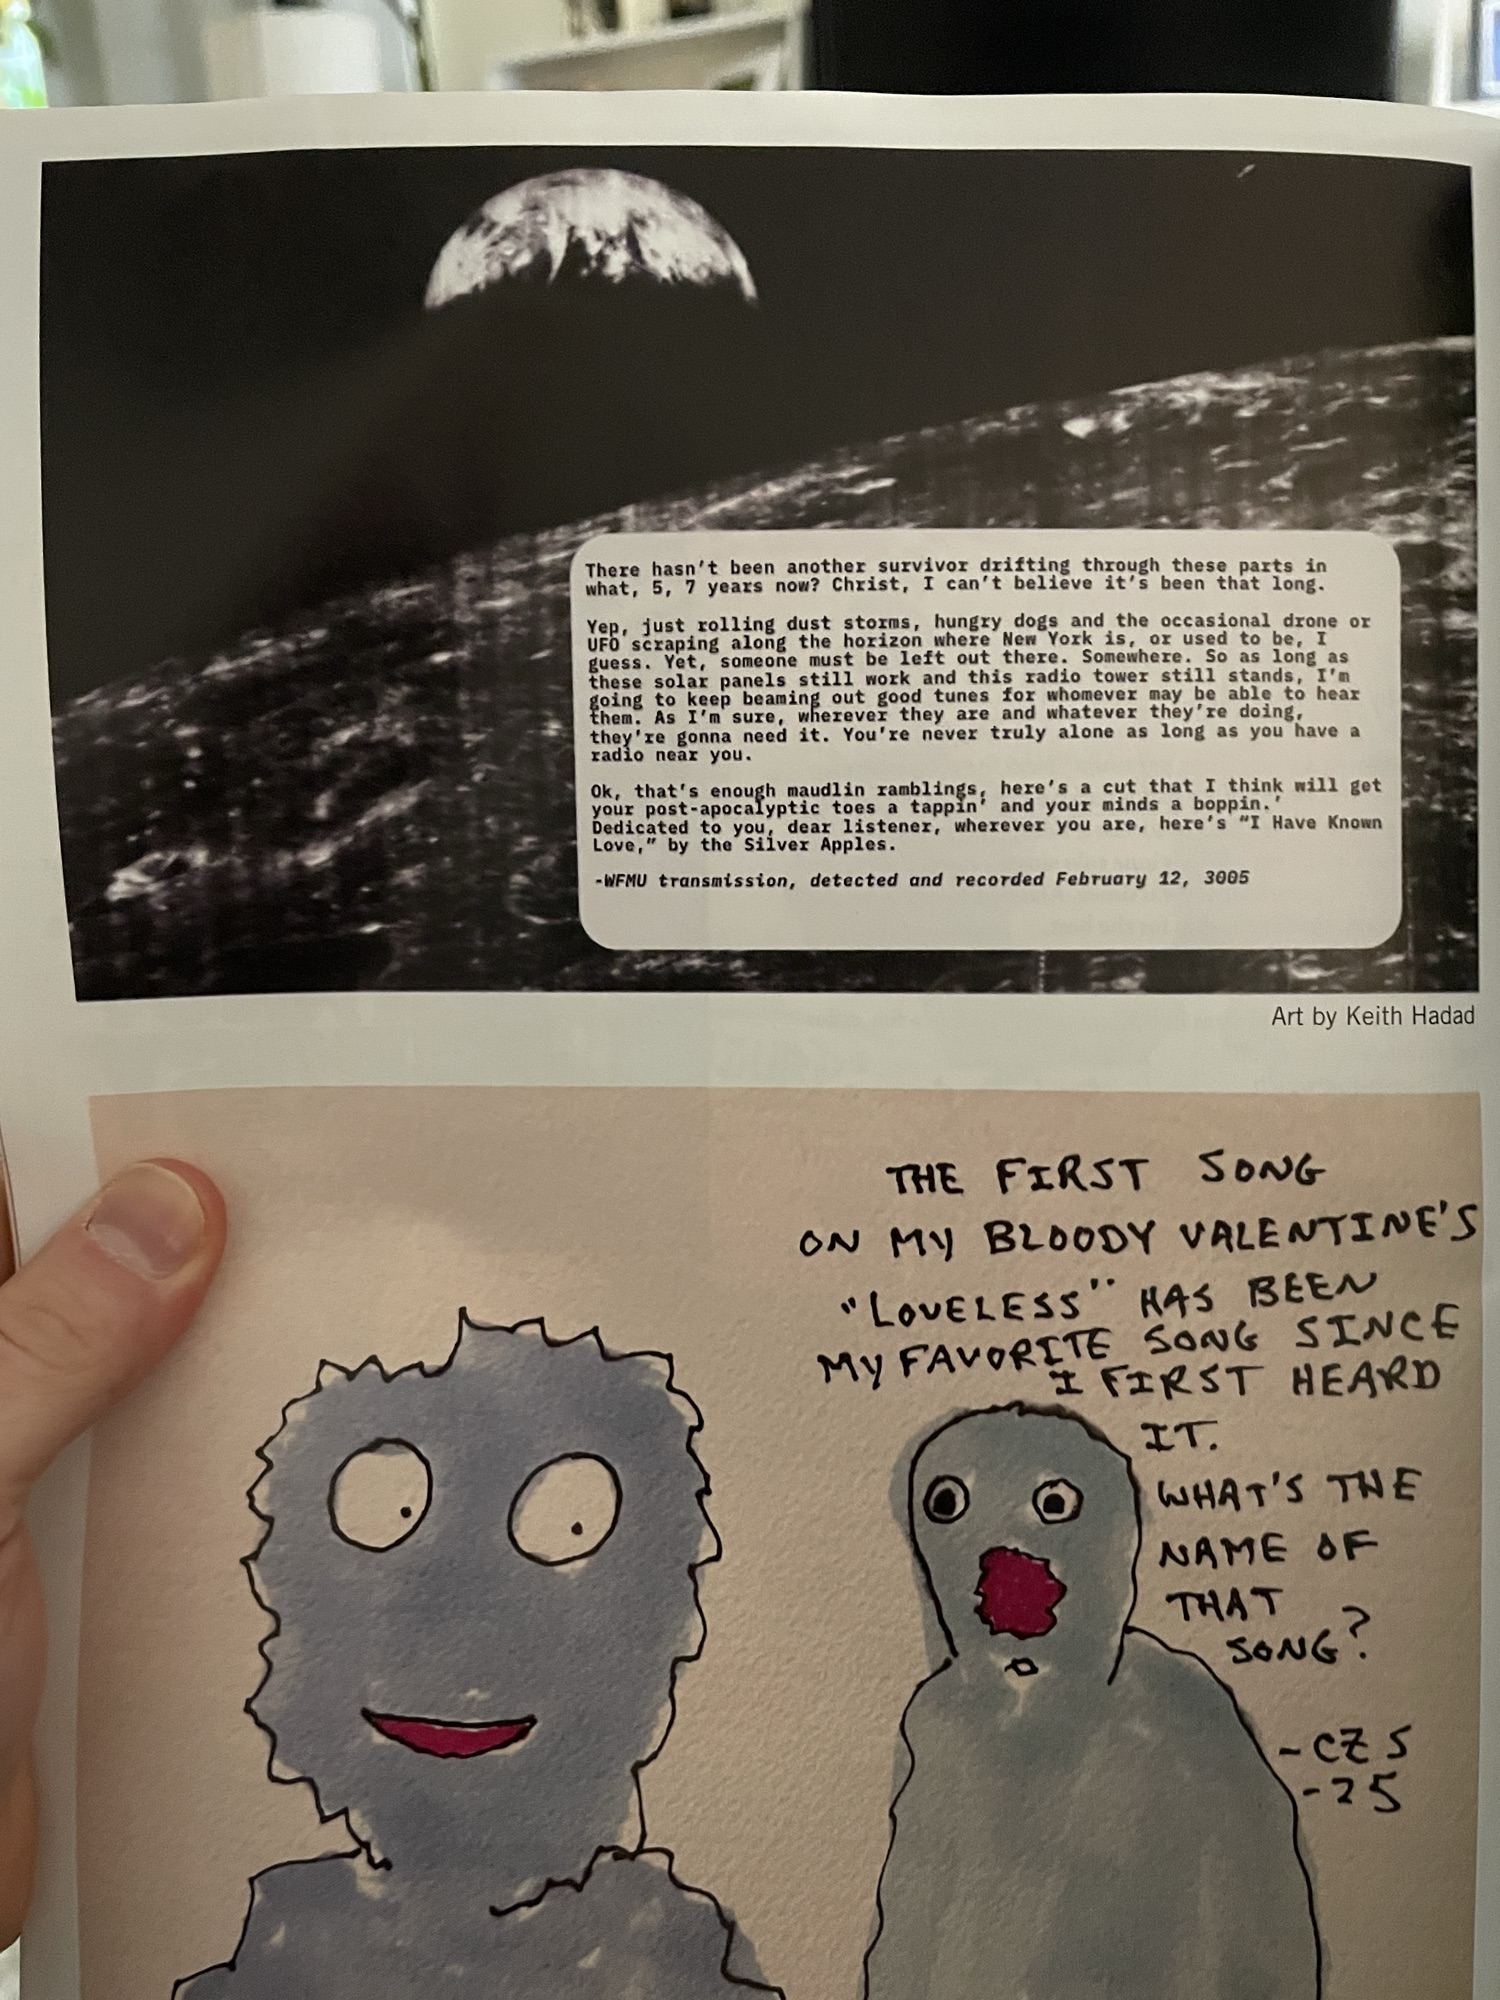 There hasn't been another survivor drifting through these parts in
what, 5, 7 years now? Christ, I can't believe it's been that long.
Yep, just rolling dust storms, hungry dogs and the occasional drone or
UFO scraping along the horizon where New York is, or used to be, I
guess. Yet, someone must be left out there. Somewhere. So as long as
these solar panels still work and this radio tower still stands, I'm
going to keep beaming out good tunes for whomever may be able to hear
them. As I'm sure, wherever they are and whatever they're doing,
they're gonna need it. You're never truly alone as long as you have a
radio near you.
Ok, that's enough maudlin ramblings, here's a cut that I think will get
your post-apocalyptic toes a tappin' and your minds a boppin.'
Dedicated to you, dear listener, wherever you are, here's "I Have Known
Love," by the Silver Apples.
-WFMU transmission, detected and recorded February 12, 3005
Art by Keith Hadad
THE FIRST SONG
ON MY BLOODY VALENTINE'S
"LOVELESS" HAS BEEN
MY FAVORITE SONG SINCE
I FIRST HEARD
IT.
WHAT'S THE
NAME OF
THAT
SONG?
-CZS
-25